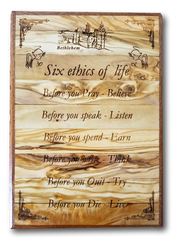 Bethlehem
Six ethics of life
Before you Pray - Believe
Before you speak - Listen
Before you spend - Earn
Before you - Think
Before you Quit - Try
Before you Die - Live